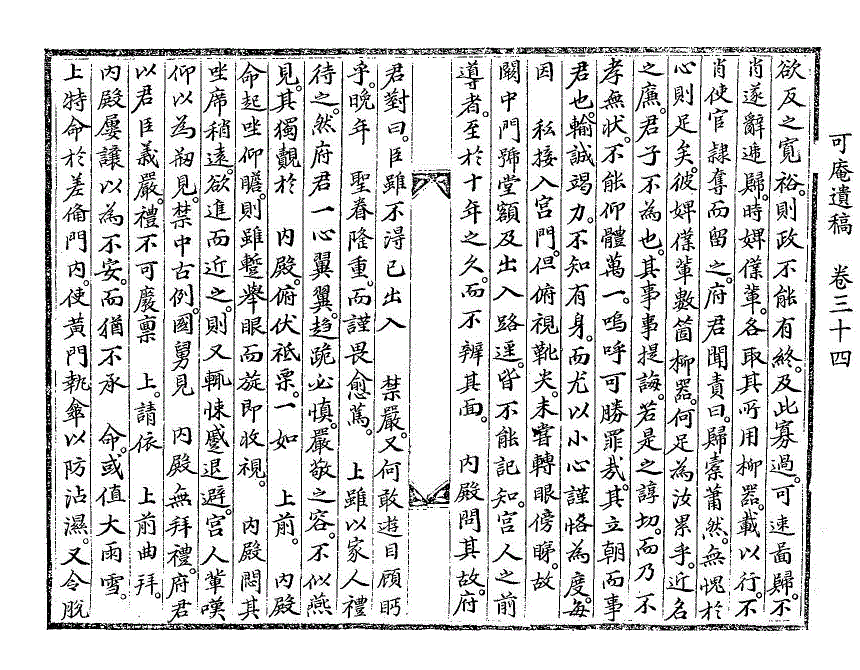 可庵遺稿　卷三十四
欲反之寬裕。則政不能有終。及此寡過。可速啚歸。不
肖遂辭遆歸。時婢僕輩。各取其所用柳器。載以行。不
肖使官隷奪而留之。府君聞責曰。歸橐蕭然。無愧於
心則足矣。彼婢僕輩數箇柳器。何足為汝累乎。近名
之廉。君子不為也。其事事提誨。若是之諄切。而乃不
孝無狀。不能仰體萬一。嗚呼可勝罪哉。其立朝而事
君也。輸誠竭力。不知有身。而尤以小心謹恪為度。每
因　私接入宮門。但俯視靴尖。未嘗轉眼傍睇。故
闕中門號堂額及出入路逕。皆不能記知。宮人之前
導者。至於十年之久。而不辨其面。　內殿問其故。府
君對曰。臣雖不淂已出入　禁嚴。又何敢遊目顧眄
乎。晚年　聖眷隆重。而謹畏愈篤。　上雖以家人禮
待之。然府君一心翼翼。趍跪必慎。嚴敬之容。不似燕
見。其獨覿於　內殿。俯伏祗栗。一如　上前。　內殿
命起坐仰瞻。則雖蹔舉眼而旋即收視。　內殿悶其
坐席稍遠。欲進而近之。則又輒悚蹙退避。宮人輩嘆
仰以為刱見。禁中古例。國舅見　內殿無拜禮。府君
以君臣義嚴。禮不可廢。稟　上。請依　上前曲拜。
內殿屢讓以為不安。而猶不承　命。或值大雨雪。
上特命於差備門內。使黃門執傘以防沾濕。又令脫